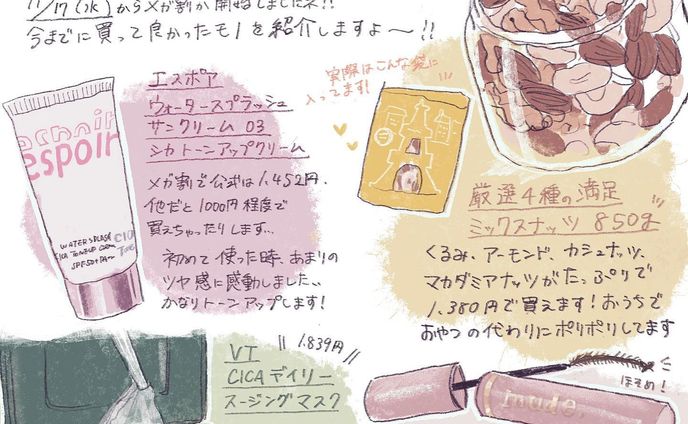 11/17(水)からメガ割が開始しましたネ!!
今までに買って良かったモノを紹介しますよ〜!!
実際はこんな袋に
入ってます!
エスポア
ウォータースプラッシュ
サンクリーム 03
シカトーンアップクリーム
メガ割で公式は1,452円、
他だと1000円程度で
買えちゃったりします…
初めて使った時、あまりの
ツヤ感に感動しました、、
かなりトーンアップします!
espoir
WATER SPLASH
CICA TONEUP CREAM
SPF50+ PA++
厳選4種の満足
ミックスナッツ 850g
くるみ、アーモンド、カシュナッツ、
マカダミアナッツがたっぷりで
1,380円で買えます!おうちで
おやつの代わりにポリポリしてます
1,839円
VT
CICAデイリー
スージングマスク
ほそめ!
mude.